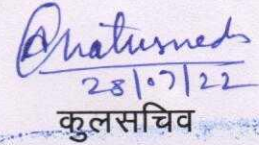 28/07/22
कुलसचिव